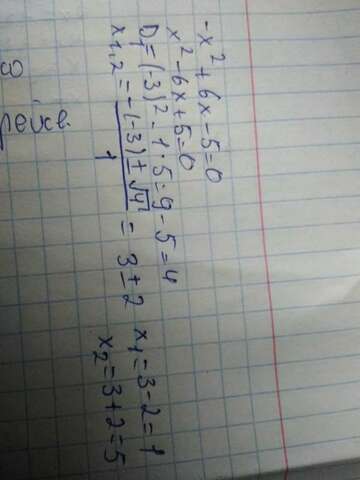 -x² + 6x - 5 = 0
x² - 6x + 5 = 0
D₁ = (-3)² - 1 · 5 = 9 - 5 = 4
x₁,₂ = -(-3) ± √4 / 1 = 3 ± 2
x₁ = 3 - 2 = 1
x₂ = 3 + 2 = 5